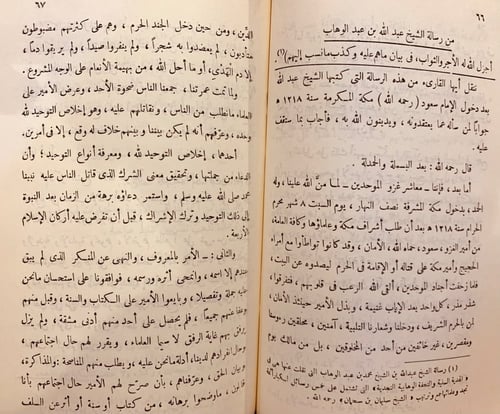 ٦٦
من رسالة الشيخ عبد الله بن عبد الوهاب
أجزل الله له الأجر والثواب، فى بيان ماهم عليه وكذب مانسب إليهم (١)
نقل أيها القارىء من هذه الرسالة التي كتبها الشيخ عبد الله
بعد دخول الإمام سعود (رحمه الله) مكة المكرمة سنة ١٢١٨ هـ
جواباً لمن سأله عما يعتقدونه، ويدينون الله به، فأجاب بما ستقف
عليه.
قال رحمه الله: بعد البسملة والحمدلة
أما بعد، فإنّا ــ معاشر غزو الموحدين ــ لما منّ الله علينا، وله
الحمد، بدخول مكة المشرفة نصف النهار، يوم السبت ٨ شهر محرم
الحرام سنة ١٢١٨ هـ بعد أن طلب أشراف مكة وعلماؤها وكافة العامة،
من أمير الغزو، سعود، حماه الله، الأمان، وقد كانوا تواطأوا مع أمراء
الحجيج وأمير مكة على قتاله أو الإقامة فى الحرم ليصدوه عن البيت،
فلما زحفت أجناد الموحدين، ألقى الله الرعب فى قلوبهم، فتفرقوا،
شذر مذر، كل واحد يعد الإياب غنيمة، وبذل الأمير حينئذ الأمان،
لمن بالحرم الشريف، ودخلنا وشعارنا التلبية، آمنين، محلقين رؤوسنا
ومقصرين، غير خائفين من أحد من المخلوقين، بل من مالك يوم
(١) رسالة الشيخ عبد الله بن الشيخ محمد بن عبد الوهاب التي نقلت منها هى فى
الهدية السنية والتحفة الوهابية النجدية، التي تشتمل على خمس رسائل
نجد وعلمائها من وترتيب الشيخ سليمان بن سحمان
٦٧
الدّين، ومن حين دخل الجند الحرم، وهم على كثرتهم مضبوطون
متأدبون، لم يعضدوا به شجراً، ولم ينفروا صيداً، ولم يريقوا دماً،
إلا دم الهَدْى، أو ما أحل الله، من بهيمة الأنعام على الوجه المشروع.
ولما تمت عمرتنا، جمعنا الناس ضحوة الأحد، وعرض الأمير على
العلماء مانطلب من الناس، ونقاتلهم عليه، وهو إخلاص التوحيد لله
وحده، وعرّفهم أنه لم يكن بيننا وبينهم خلاف له وقع، إلا فى أمرين.
أحدهما، إخلاص التوحيد لله، ومعرفة أنواع التوحيد؛ وأن
الدعاء من جملتها، وتحقيق معنى الشرك الذى قاتل الناس عليه نبينا
محمد صلى الله عليه وسلم، واستمر دعاؤه برهة من الزمان بعد النبوة
إلى ذلك التوحيد وترك الإشراك، قبل أن تفرض عليه أركان الإسلام
الأربعة.
والثانى: ــ الأمر بالمعروف، والنهى عن المنكر الذى لم يبق
عندهم إلا اسمه، وانمحى أثره ورسمه، فوافقونا على استحسان مانحن
عليه جملة وتفصيلا، وبايعوا الأمير على الكتاب والسنة، وقبل منهم
منهم جميعاً، فلم يحصل على أحد منهم أدنى مشقة، ولم يزل
يرفق بهم غاية الرفق لا سيما العلماء، ويقرر لهم حال اجتماعهم،
وحال انفرادهم لدينا، أدلة مانحن عليه، ويطلب منهم المناصحة والمذاكرة،
وبيان الحق، وعرّفناهم، بأن صرّح لهم الأمير حال اجتماعهم بأنا
ماوضحوا برهانه، من كتاب أو سنة أو أثر عن السلف